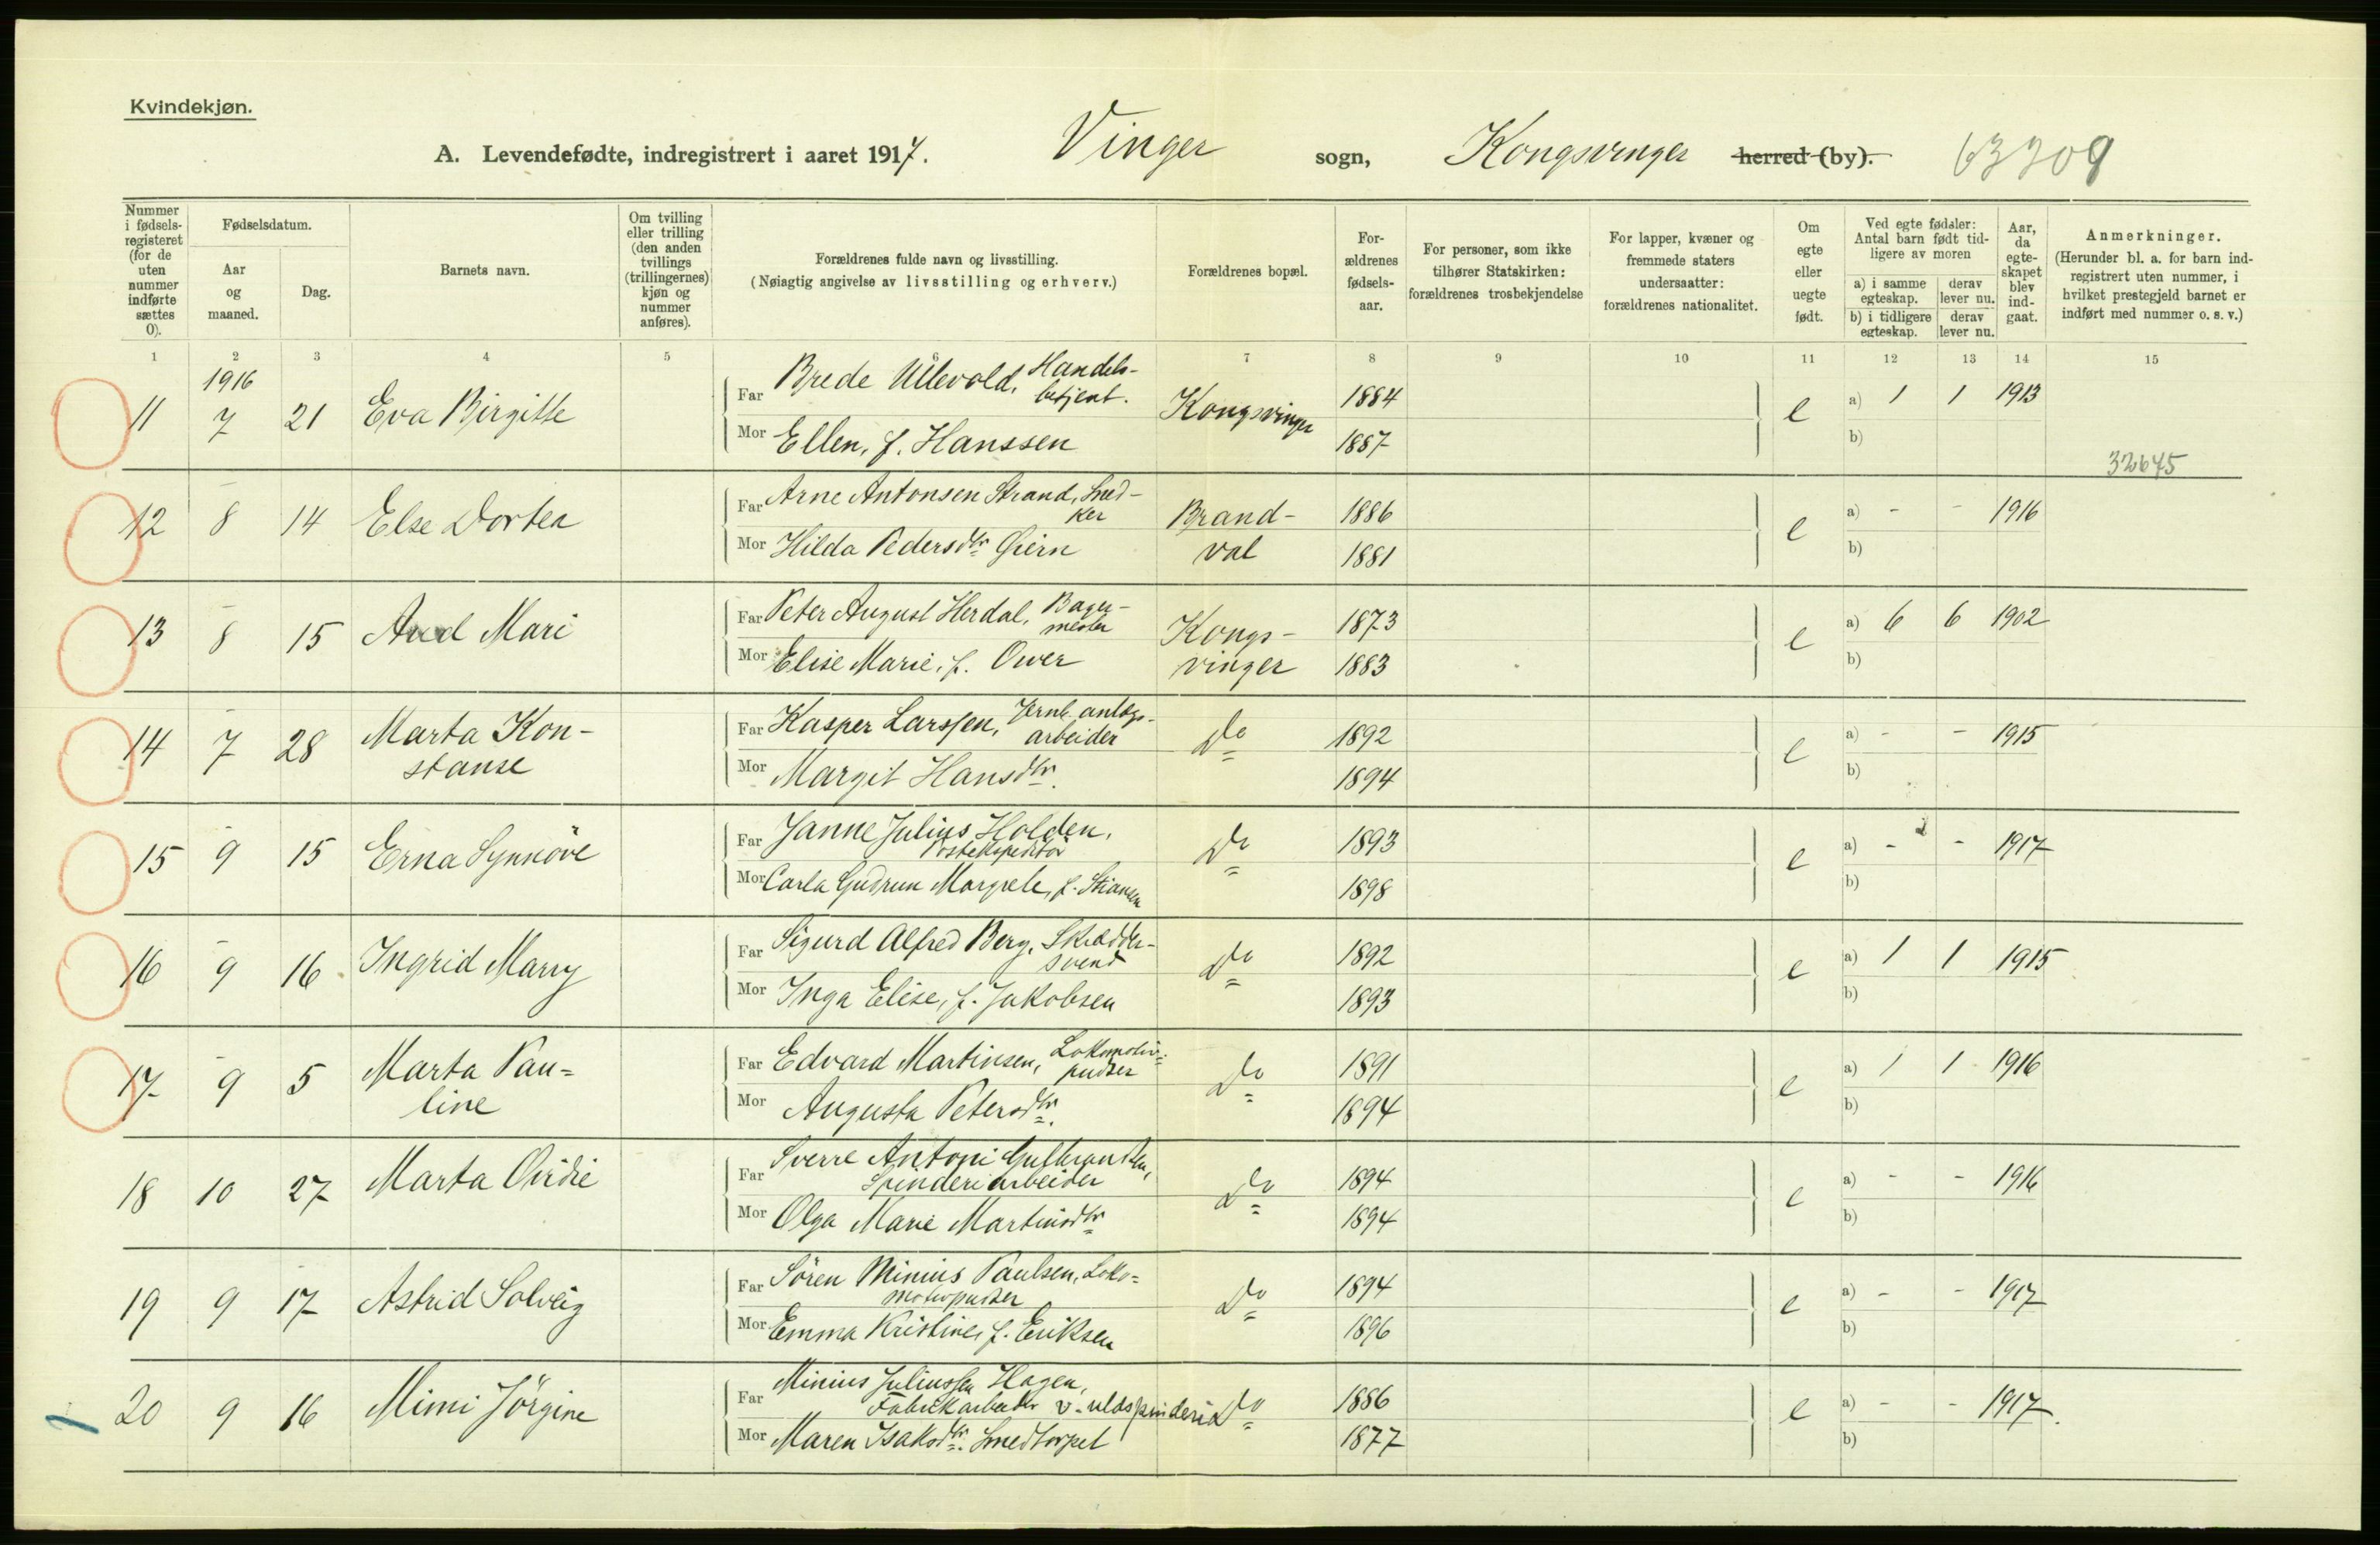 Kvindekjøn.
A. Levendefødte, indregistrert i aaret 1917. Vinger sogn, Kongsvinger herred (by). 63309
Nummer i fødselsregisteret (for de uten nummer indførte sættes 0).
Fødselsdatum.
Aar og maaned.
Dag.
Barnets navn.
Om tvilling eller trilling (den anden tvillings (trillingernes) kjøn og nummer anføres).
Forældrenes fulde navn og livsstilling.
(Nøiagtig angivelse av livsstilling og erhverv.)
Forældrenes bopæl.
Forældrenes fødselsaar.
For personer, som ikke tilhører Statskirken: forældrenes trosbekjendelse
For lapper, kvæner og fremmede staters undersaatter: forældrenes nationalitet.
Om egte eller uegte født.
Ved egte fødsler: Antal barn født tidligere av moren
a) i samme egteskap.
derav lever nu.
b) i tidligere egteskap.
derav lever nu.
Aar, da egteskapet blev indgaat.
Anmerkninger.
(Herunder bl. a. for barn indregistrert uten nummer, i hvilket prestegjeld barnet er indført med nummer o. s. v.)
1 2 3 4 5 6 7 8 9 10 11 12 13 14 15
1916
11 7 21 Eva Birgitte Far Brede Ullevold, Handelsbetjent. Kongsvinger 1884 e a) 1 1 1913
Mor Ellen, f. Hanssen 1887 b)
32645
12 8 14 Else Dortea Far Arne Antonsen Strand, Snedker Brandval 1886 e a) - - 1916
Mor Hilda Pedersdtr Øiern 1881 b)
13 8 15 Aud Mari Far Peter August Herdal, Bagermester Kongsvinger 1873 e a) 6 6 1902
Mor Elise Marie, f. Ower 1883 b)
14 7 28 Marta Konstanse Far Kasper Larssen, Jernb. anlægsarbeider Do 1892 e a) - - 1915
Mor Margit Hansdtr. 1894 b)
15 9 15 Erna Synnöve Far Janne Julius Holden, Postekspeditør Do 1893 e a) - - 1917
Mor Carla Gudrun Margrete, f. Stiansen 1898 b)
16 9 16 Ingrid Marry Far Sigurd Alfred Berg, Skræddersvend Do 1892 e a) 1 1 1915
Mor Inga Elise, f. Jakobsen 1893 b)
17 9 5 Marta Pauline Far Edvard Martinsen, Lokomotivpudser Do 1891 e a) 1 1 1916
Mor Augusta Petersdtr. 1894 b)
18 10 27 Marta Ovidie Far Sverre Antoni Gulbrandsen, Spinderiarbeider Do 1894 e a) - - 1916
Mor Olga Marie Martinsdtr 1894 b)
19 9 17 Astrid Solveig Far Sören Minius Paulsen, Lokomotivpudser Do 1894 e a) - - 1917
Mor Emma Kristine, f. Eriksen 1896 b)
20 9 16 Mimi Jörgine Far Minius Juliussen Hagen, Fabrikarbeider v. uldspinderi Do 1886 e a) - - 1917.
Mor Maren Isaksdtr. Smedtorpet 1877 b)